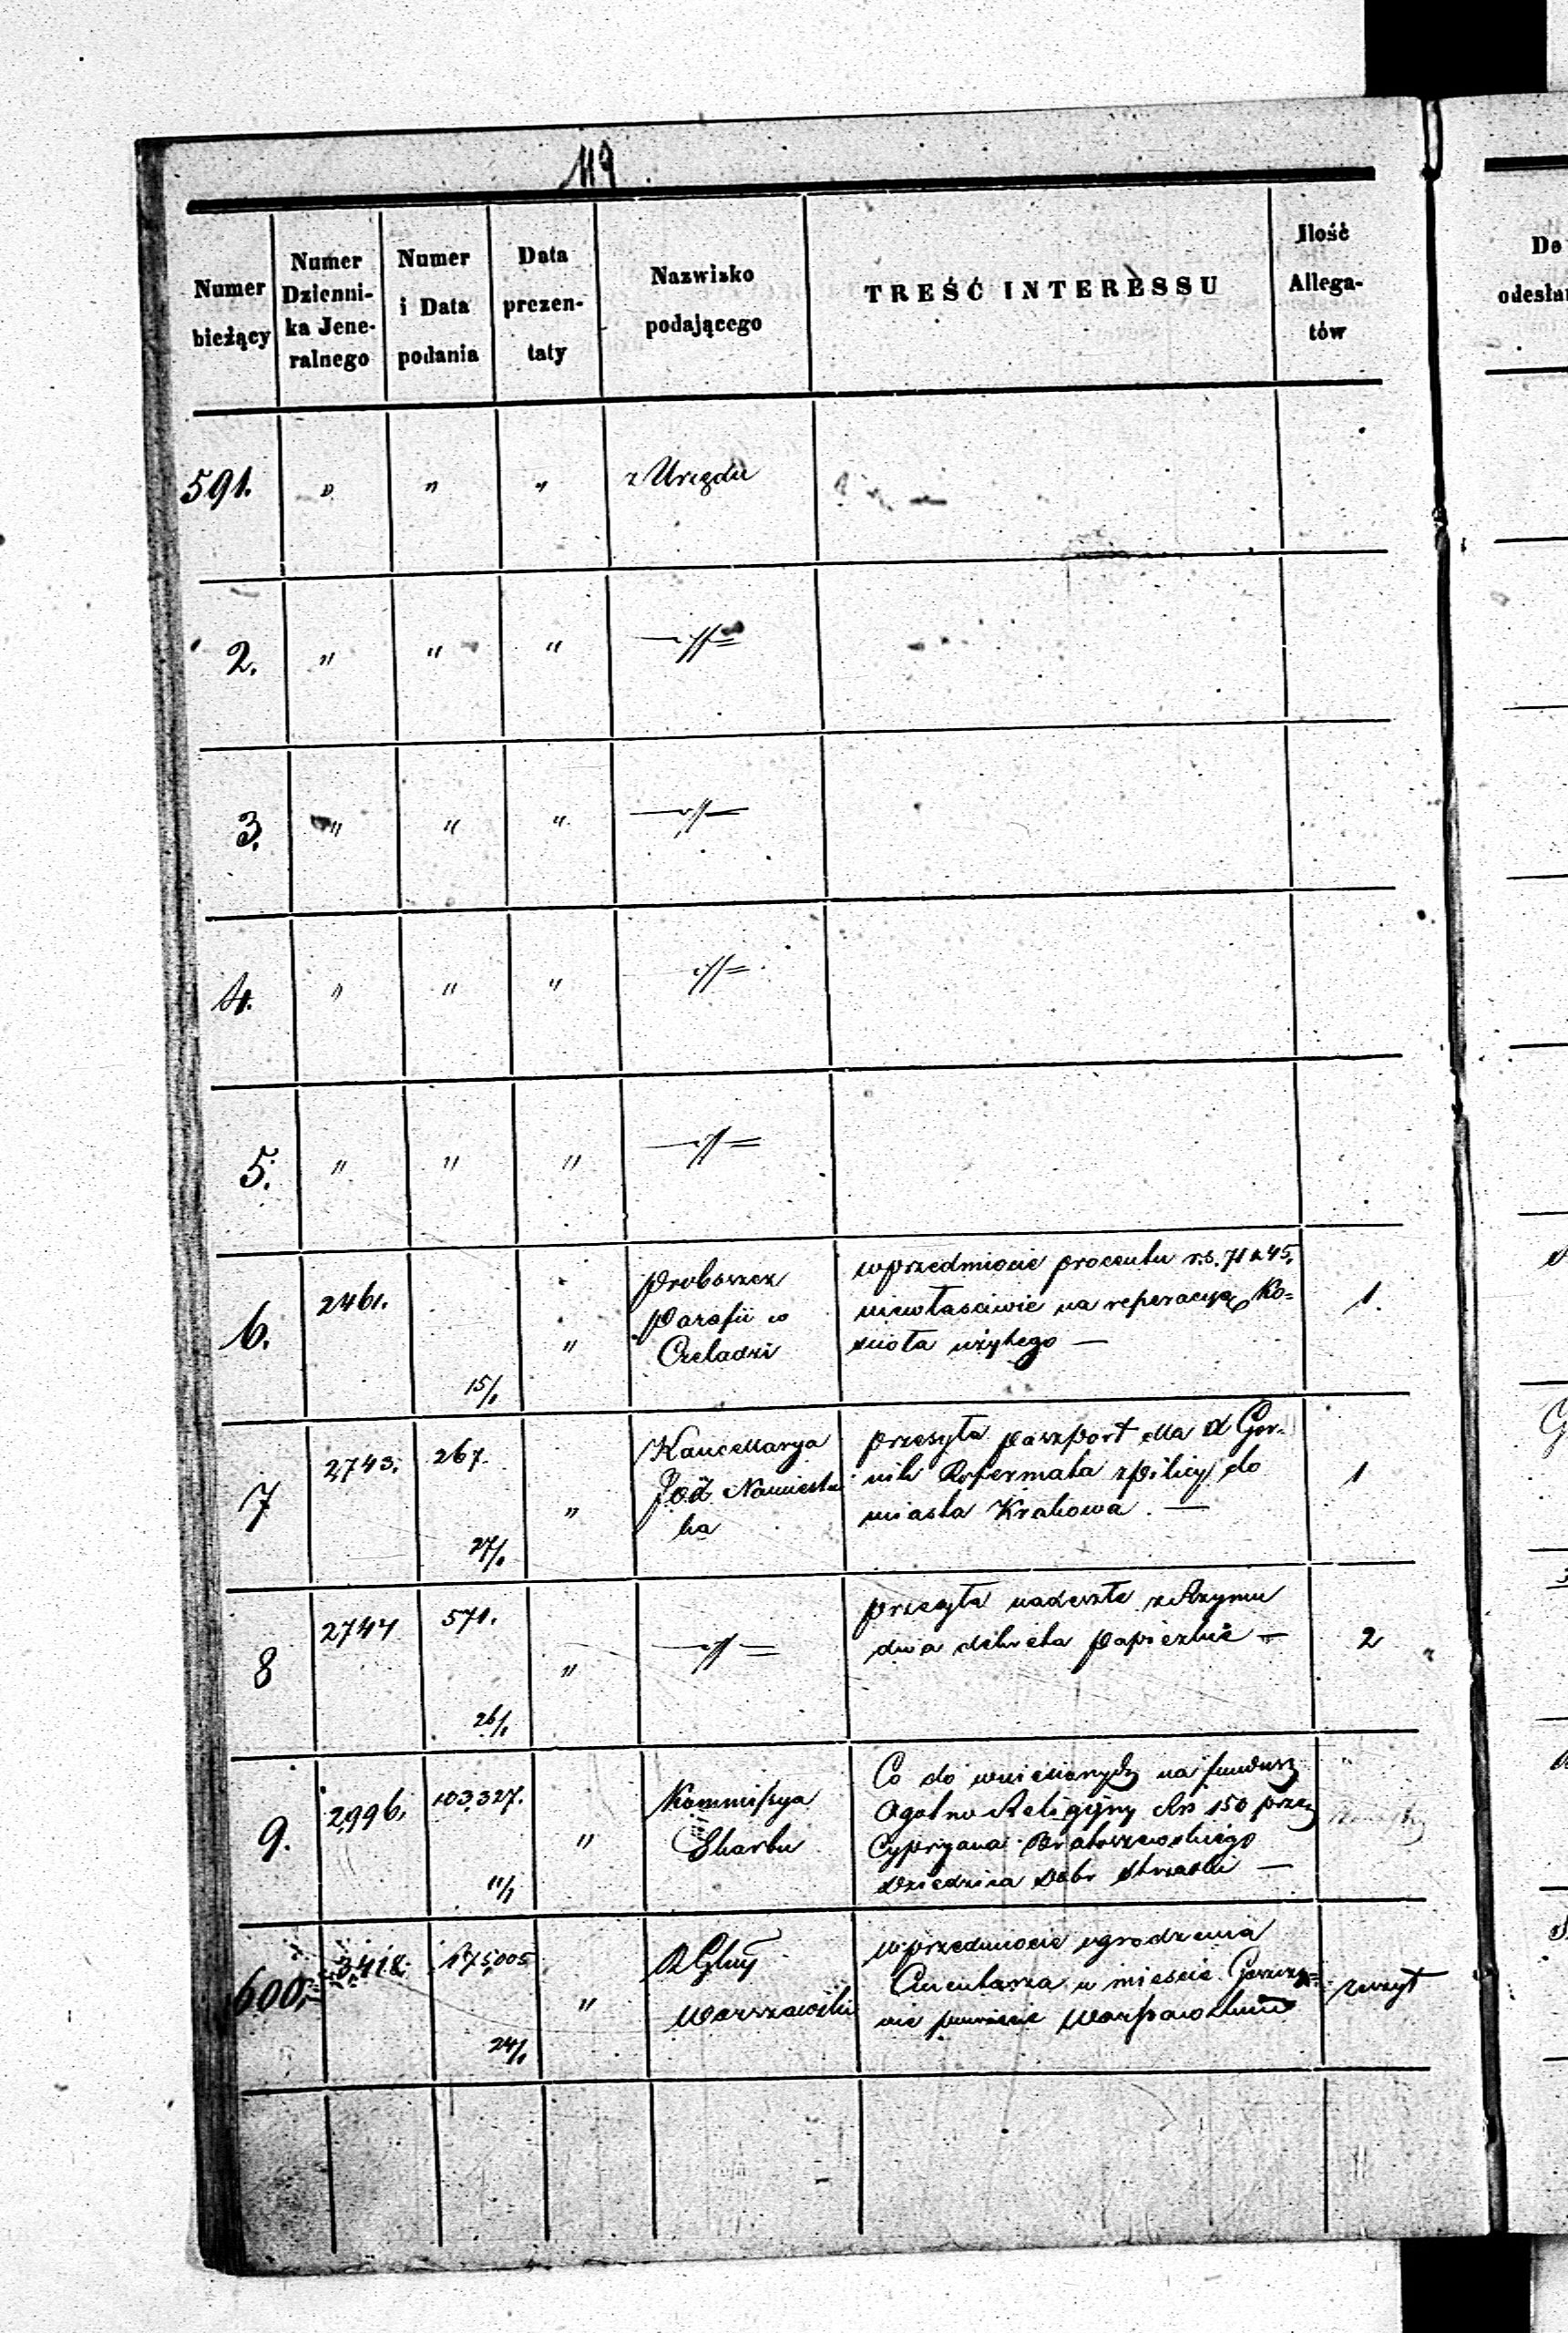 119.
Numer bieżący
Numer Dzienni-ka Jene-ralnego
Numer i Data podania
Data prezen-taty
Nazwisko podającego
TREŚĆ INTERESSU
Ilość Allega-tów
De
odesła
591. " " " z Urzędu
2. " " " —"—
3. " " " —"—
4. " " " —"—
5. " " " —"—
6. 2461. 15/1 "
Proboszcz
Parafii w
Czeladzi
w przedmiocie procentu r.s. 71 k 45.
niewłaściwie na reperacyą Ko=
ścioła użytego —
1.
7 2743. 267. 27/1 "
Kancellarya
Namiestni
ka
przesyła paszport dla X Gór-
nik Reformata z Pilicy do
miasta Krakowa. —
1
8 2744 571. 26/1 " —"—
przesyła nadeszłe z Rzymu
dwa dekreta Papiezkie —
2
9. 2996. 103,327. 11/1 "
Kommissya
Skarbu
Co do wniesionych na fundusz
Ogólno Religijny Rs 150 przez
Cypryana
Dziedzica Dóbr —
600. 3418. 175,005 24/1 "
R. Gbny
Warszawski
w przedmiocie ogrodzenia
Cmentarza w mieście
nie powiecie Warszawskim
zeszyt